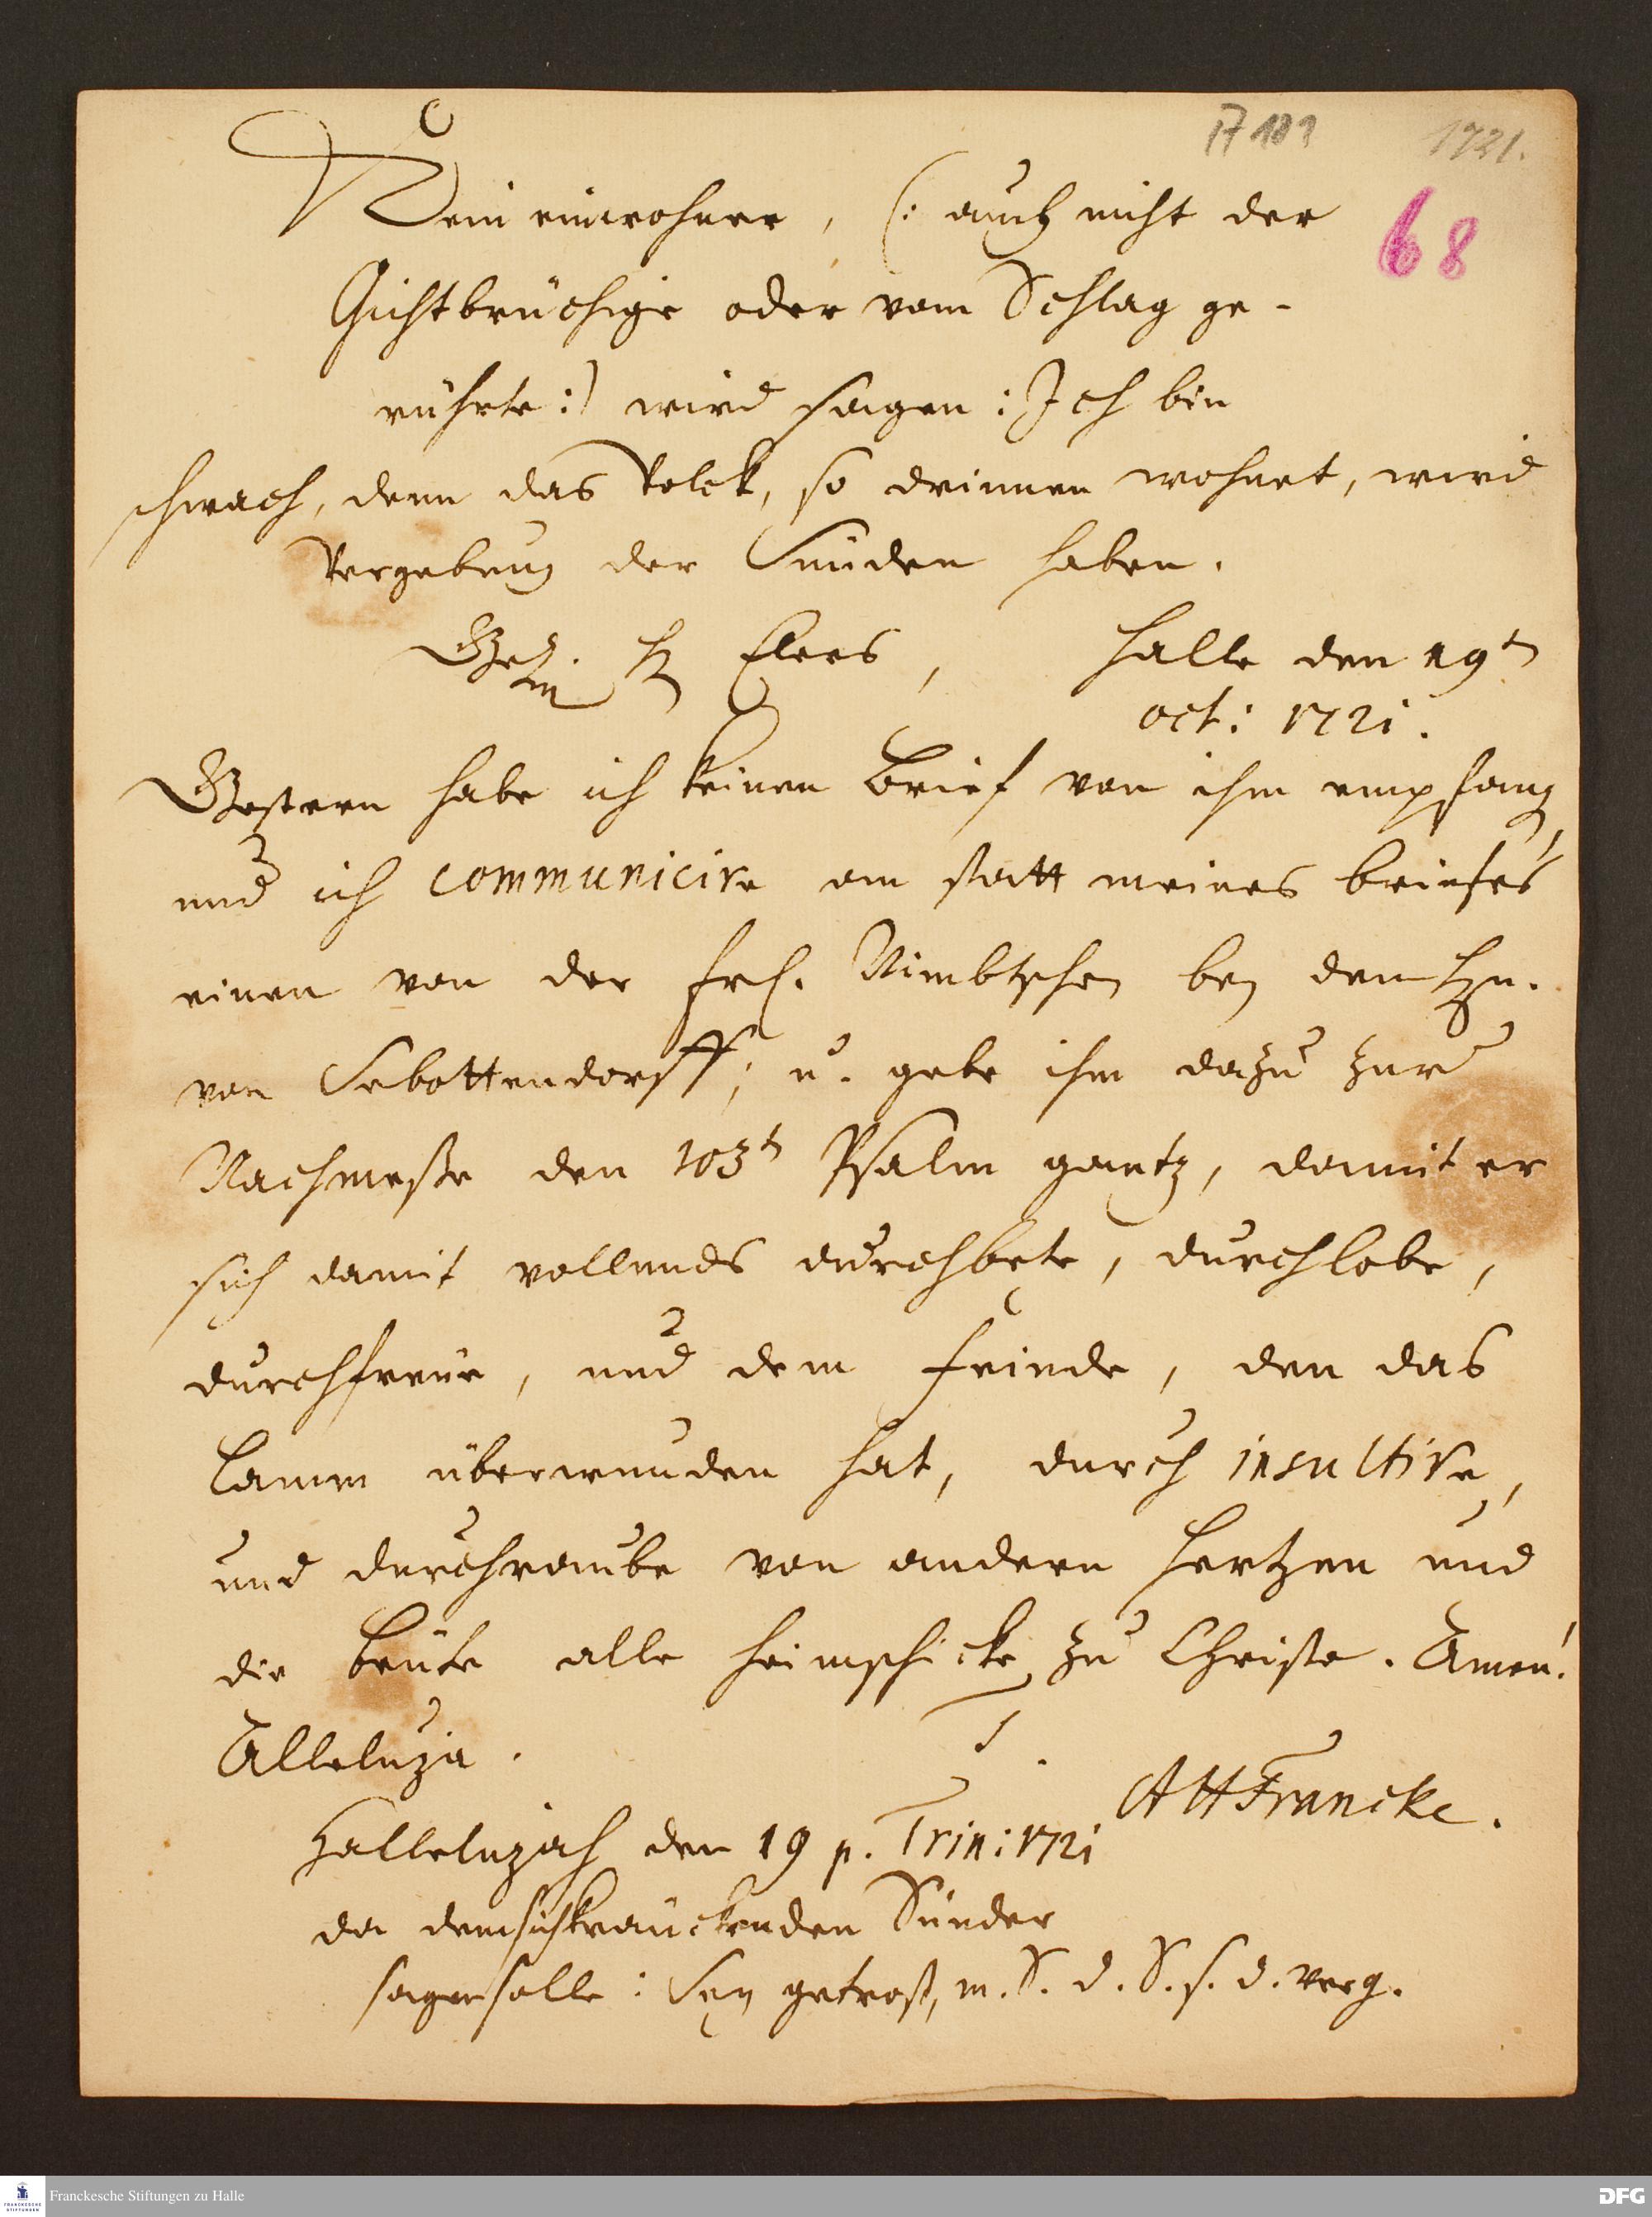 1721.
68
Kein einwohner, (: auch nicht der
Gichtbrüchige oder vom Schlag ge-
rührte :) wird sagen: Ich bin
schwach, denn das Volck, so drinnen wohnet, wird
Vergebung der Sünden haben.
H Elers, Halle den 19t
oct: 1721.
Gestern habe ich keinen Brief von ihm empfang,
und ich communicire an statt meines briefes
einen von der Frl. Nimbtschen bey dem Hn.
von Sebottendorff; u. gebe ihm dazu zur
Nachmeße den 103t Psalm gantz, damit er
sich damit vollends durchbete, durchlobe,
durchfreue, und dem Feinde, den das
Lamm überwunden hat, durch insultire,
und durchraube von andern Hertzen und
die Beute alle heimschicke zu Christo. Amen!
Alleluja.
AHFrancke.
Hallelujah den 19 p. Trin: 1721
da dem sich kränckenden Sünder
sagen solle: Sey getrost, m. S. d. S. s. d. verg.
Franckesche Stiftungen zu Halle
DFG